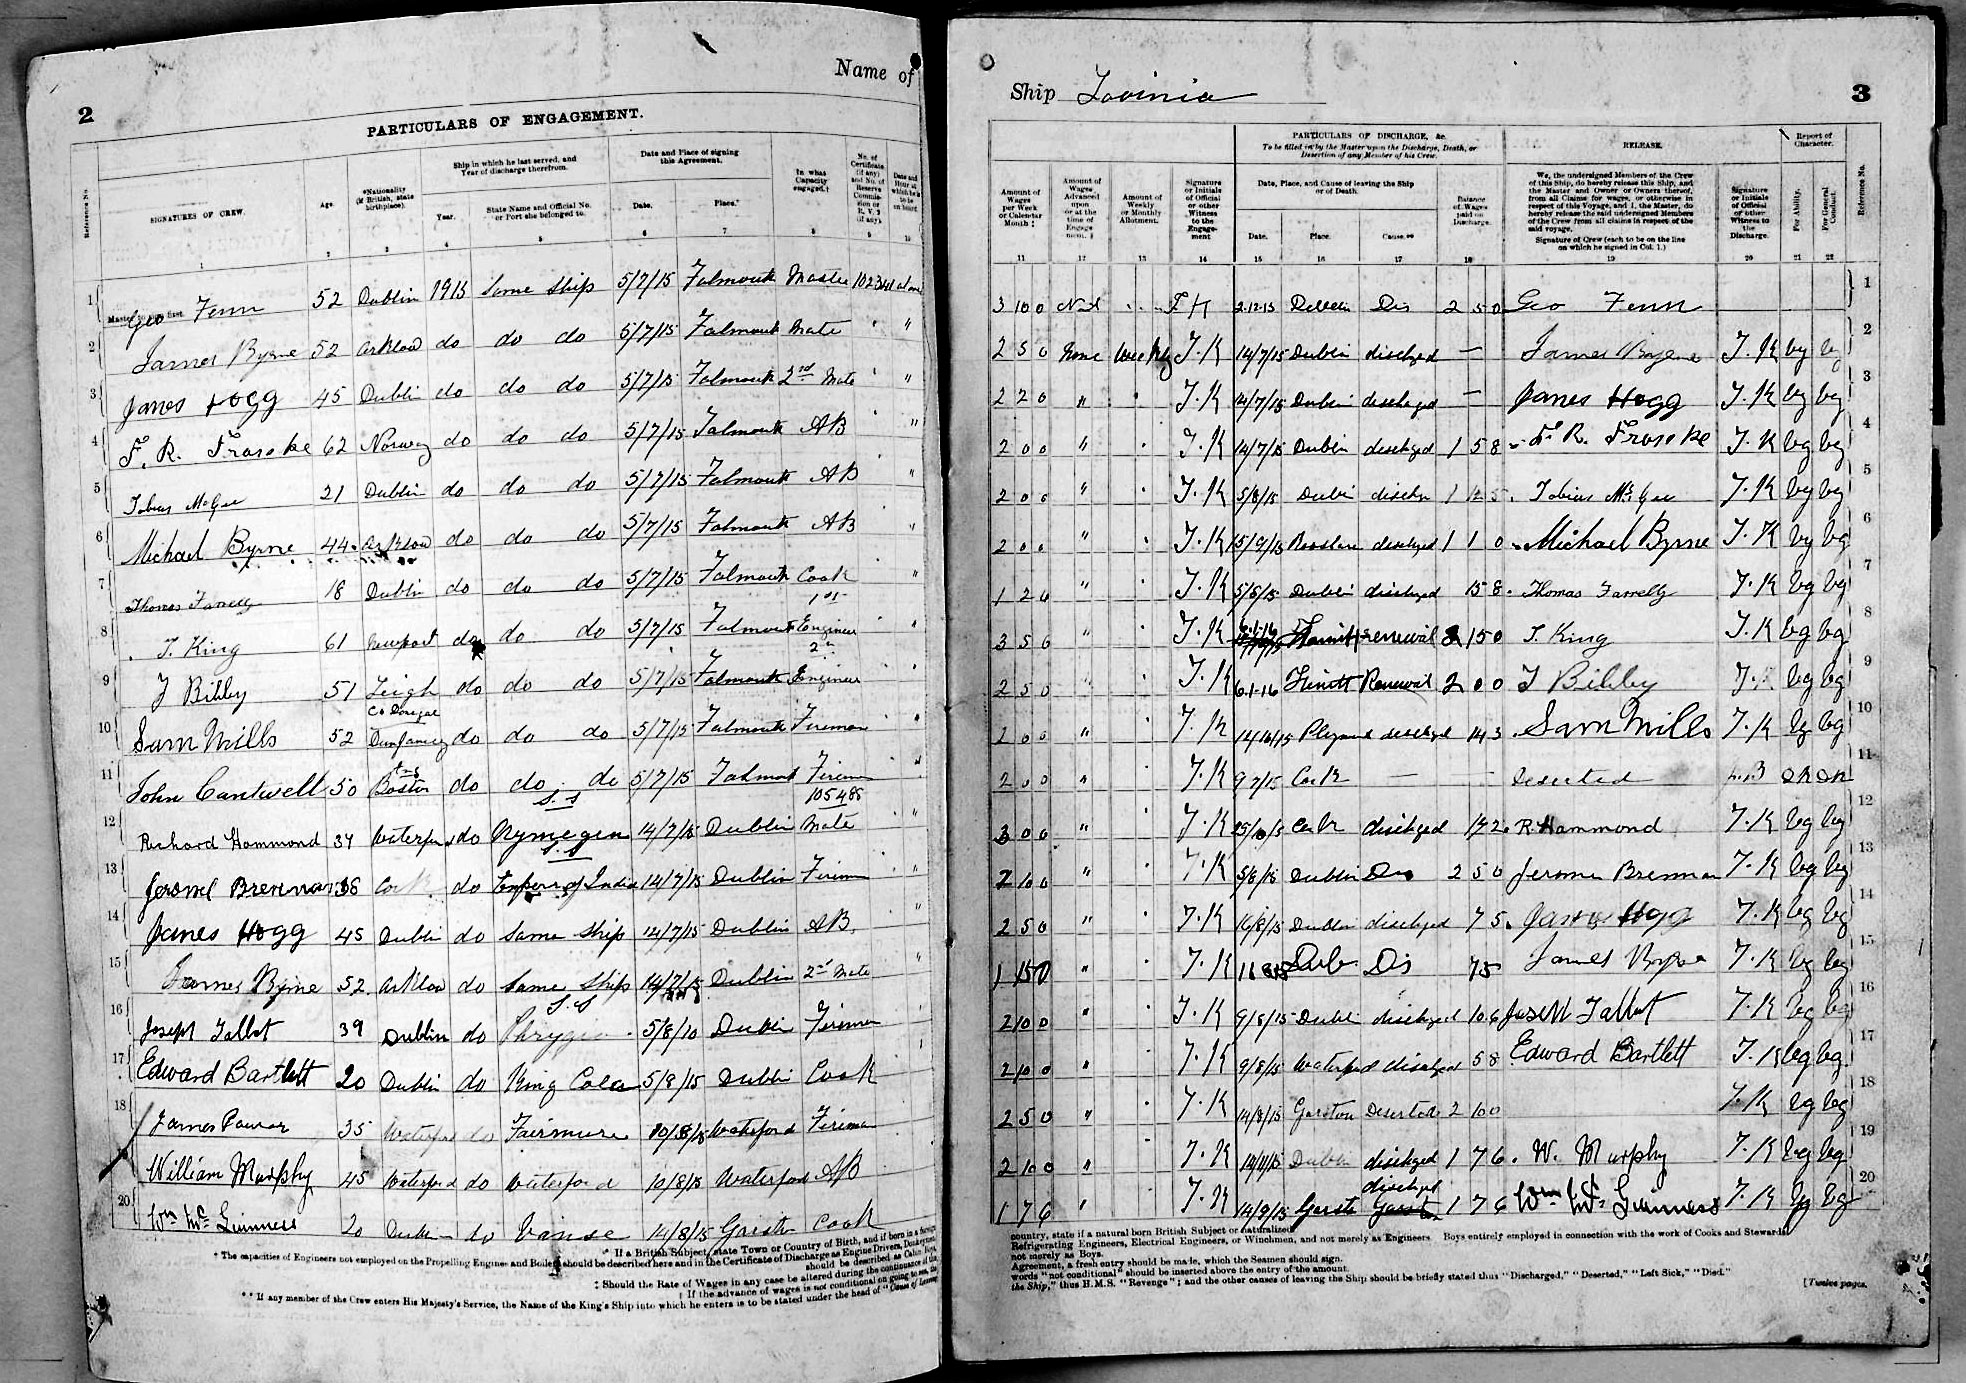 Name of
2
PARTICULARS OF ENGAGEMENT.
Reference No.
SIGNATURES OF CREW.
Age.
*Nationality (if British, state birthplace).
Ship in which he last served, and Year of discharge therefrom.
Year.
State Name and Official No. or Port she belonged to.
Date and Place of signing this Agreement.
Date.
Place.*
In what Capacity engaged.†
No. of Certificate (if any) and No. of Reserve Commission or R. V. 2 (if any).
Date and Hour at which he is to be on board.
1 2 3 4 5 6 7 8 9 10
1 Geo Fenn 52 Dublin 1915 Same ship 5/7/15 Falmouth Master
Master to sign first.
2 James Byrne 52 Arklow do do do 5/7/15 Falmouth Mate "
3 James Hogg 45 Dublin do do do 5/7/15 Falmouth 2nd Mate "
4 F. R. 62 Norway do do do 5/7/15 Falmouth AB "
5 Tobias McGee 21 Dublin do do do 5/7/15 Falmouth AB "
6 Michael Byrne 44 Arklow do do do 5/7/15 Falmouth AB "
7 Thomas Farrelly 18 Dublin do do do 5/7/15 Falmouth Cook "
8 T. King 61 Newport do do do 5/7/15 Falmouth 1st Engineer "
9 J Bibby 51 Leigh do do do 5/7/15 Falmouth 2nd Engineer
10 Sam Mills 52 Co Donegal Dunfanaghy do do do 5/7/15 Falmouth Fireman "
11 John Cantwell 50 Boston do do do 5/7/15 Falmouth Fireman "
12 Richard Hammond 37 Waterford do S.S Nymegen 14/7/15 Dublin 105488 Mate "
13 Jerome Brennan 38 Cork do S.S Empire of India 14/7/15 Dublin Fireman "
14 James Hogg 45 Dublin do Same ship 14/7/15 Dublin AB. "
15 James Byrne 52 Arklow do Same Ship 14/7/15 Dublin 2nd Mate "
16 Joseph Talbot 39 Dublin do S.S 5/8/10 Dublin Fireman
17 Edward Bartlett 20 Dublin do King Cole 5/8/15 Dublin Cook
18 James Power 35 Waterford do Fairmure 10/8/15 Waterford Fireman
William Murphy 45 Waterford do Waterford 10/8/15 Waterford AB
20 Wm McGuinness 20 Dublin do 14/8/15 Garston Cook
* If a British Subject, state Town or Country of Birth, and if born in a foreign
† The capacities of Engineers not employed on the Propelling Engines and Boilers should be described here and in the Certificate of Discharge as Engine Drivers, Donkeymen,
should be described as Cabin Boys,
‡ Should the Rate of Wages in any case be altered during the continuance of this
‖ If the advance of wages is not conditional on going to sea, the
** If any member of the Crew enters His Majesty's Service, the Name of the King's Ship into which he enters is to be stated under the head of "Cause of Leaving
Ship Lavinia
3
PARTICULARS OF DISCHARGE, &c.
To be filled in by the Master upon the Discharge, Death, or Desertion of any Member of his Crew.
RELEASE.
Report of Character.
Amount of Wages per Week or Calendar Month ‡
Amount of Wages Advanced upon or at the time of Engagement. ‖
Amount of Weekly or Monthly Allotment.
Signature or Initials of Official or other Witness to the Engagement
Date, Place, and Cause of leaving the Ship or of Death.
Date.
Place.
Cause.**
Balance of Wages paid on Discharge.
We, the undersigned Members of the Crew of this Ship, do hereby release this Ship, and the Master and Owner or Owners thereof, from all Claims for wages, or otherwise in respect of this Voyage, and I, the Master, do hereby release the said undersigned Members of the Crew from all claims in respect of the said voyage.
Signature of Crew (each to be on the line on which he signed in Col. 1.)
Signature or Initials of Official or other Witness to the Discharge.
For Ability.
For General Conduct.
Reference No.
11 12 13 14 15 16 17 18 19 20 21 22
3 10 0 2.12.15 Dublin Dis 2 5 0 Geo Fenn 1
2 5 0 None Weekly T.K 14/7/15 Dublin dischged — James Byrne T.K vg vg 2
2 2 0 " T.K 14/7/15 Dublin dischged — James Hogg T.K vg vg 3
2 0 0 " T.K 14/7/15 Dublin dischged 1 5 8 F. R. T.K vg vg 4
2 0 0 " T.K 5/8/15 Dublin 1 12 5 Tobias McGee T.K vg vg 5
2 0 0 " T.K 15/9/15 dischged 1 1 0 Michael Byrne T.K vg vg 6
1 2 0 " T.K 5/8/15 Dublin dischged 15 8 Thomas Farrelly T.K vg vg 7
3 5 0 " T.K 6.1.16 renewal 15 0 T. King T.K vg vg 8
2 5 0 " T.K 6.1.16 Renewal 2 0 0 J Bibby vg vg 9
2 0 0 " T.K dischged 14 3 Sam Mills T.K vg vg 10
2 0 0 " T.K 9 7/15 Cork — — Deserted 11
3 0 0 " T.K Cork dischged R Hammond T.K vg vg 12
2 10 0 " T.K 5/8/15 Dublin Dis 2 5 0 Jerome Brennan T.K vg vg 13
2 5 0 " T.K 16/8/15 Dublin dischged 7 5 James Hogg T.K vg vg 14
" T.K Dub Dis 7 5 James Byrne T.K vg vg 15
2 10 0 " T.K 9/8/15 Dublin dischged 10 6 Joseph Talbot T.K vg vg 16
2 10 0 " T.K 9/8/15 Waterford dischged 5 8 Edward Bartlett T.K vg vg 17
2 5 0 " T.K 14/8/15 Garston Deserted 2 10 0 T.K vg vg 18
2 10 0 " T.K Dublin dischged 1 7 6 W. Murphy T.K vg vg 19
1 7 6 " T.K 14/9/15 Garston dischged 1 7 6 Wm McGuinness T.K vg vg 20
country, state if a natural born British Subject or naturalized.
Refrigerating Engineers, Electrical Engineers, or Winchmen, and not merely as Engineers Boys entirely employed in connection with the work of Cooks and Stewards
not merely as Boys.
Agreement, a fresh entry should be made, which the Seamen should sign.
words "not conditional" should be inserted above the entry of the amount.
the Ship," thus H.M.S. "Revenge"; and the other causes of leaving the Ship should be briefly stated thus "Discharged," "Deserted," "Left Sick," "Died."
[Twelve pages.